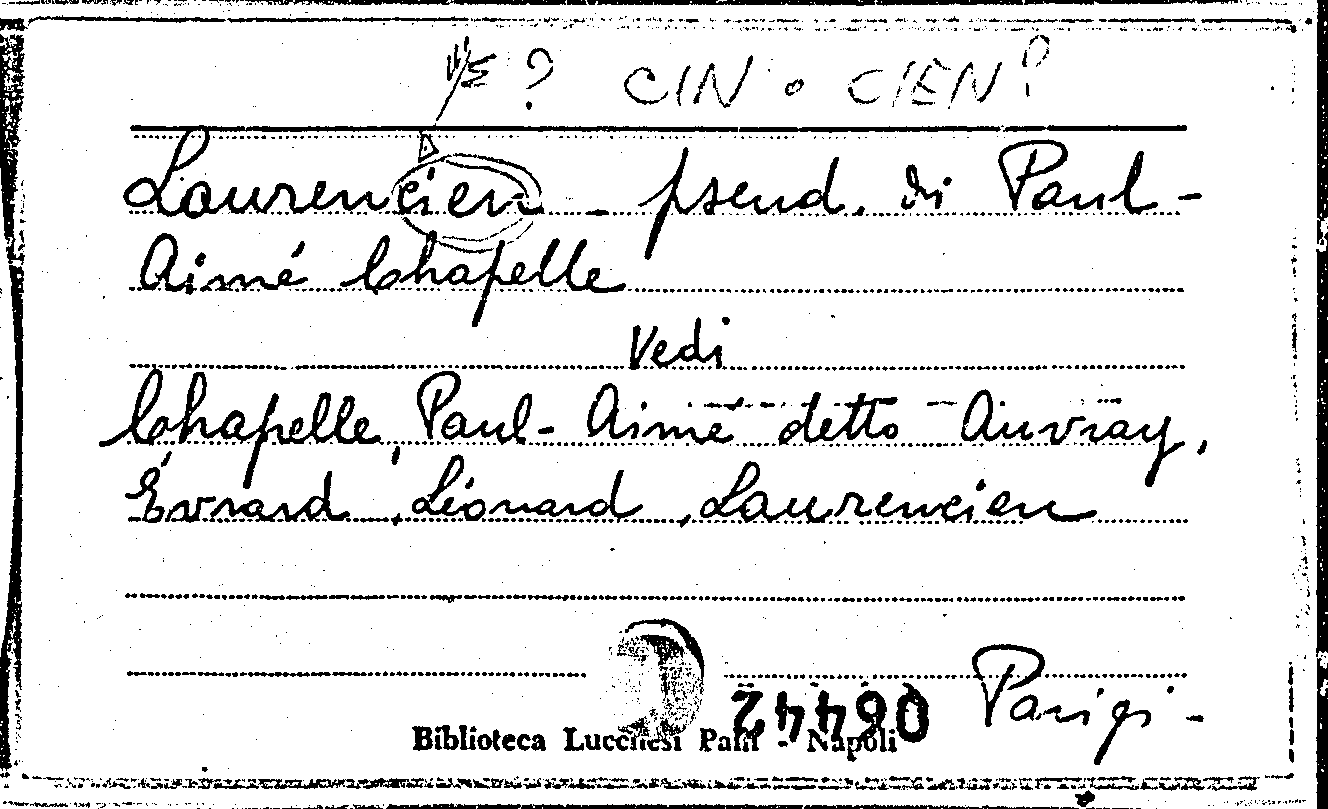 ? CIN o CIEN?
Laurencien - pseud. di Paul-
Aimé Chapelle
Vedi
Chapelle, Paul-Aimé detto Auvray,
Évrard, Léonard, Laurencien
Parigi-
064442
Biblioteca Lucchesi Palli - Napoli